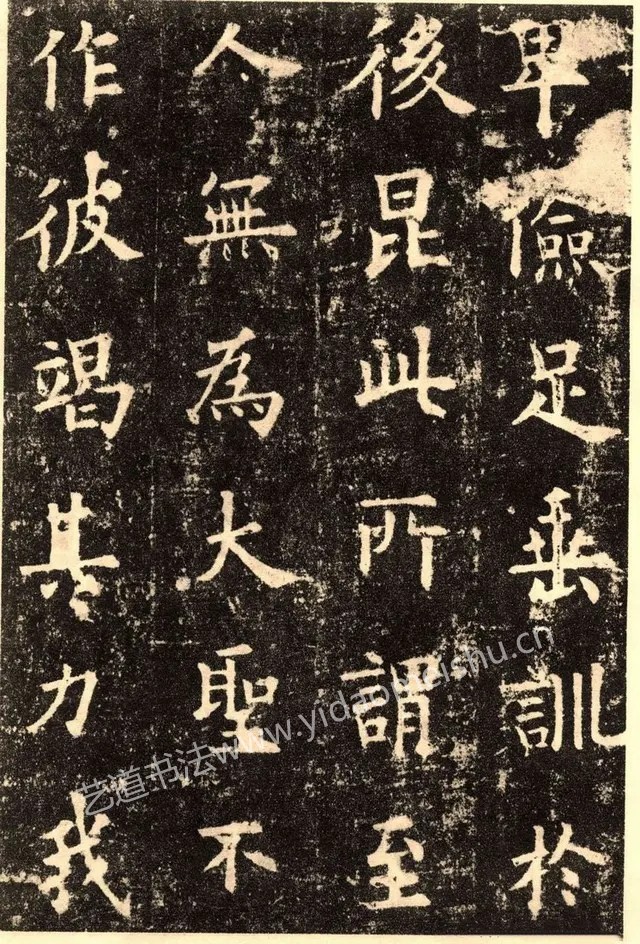 卑儉足垂訓於
後昆此所謂至
人無為大聖不
作彼竭其力我
艺道书法www.yidaomeishu.cn